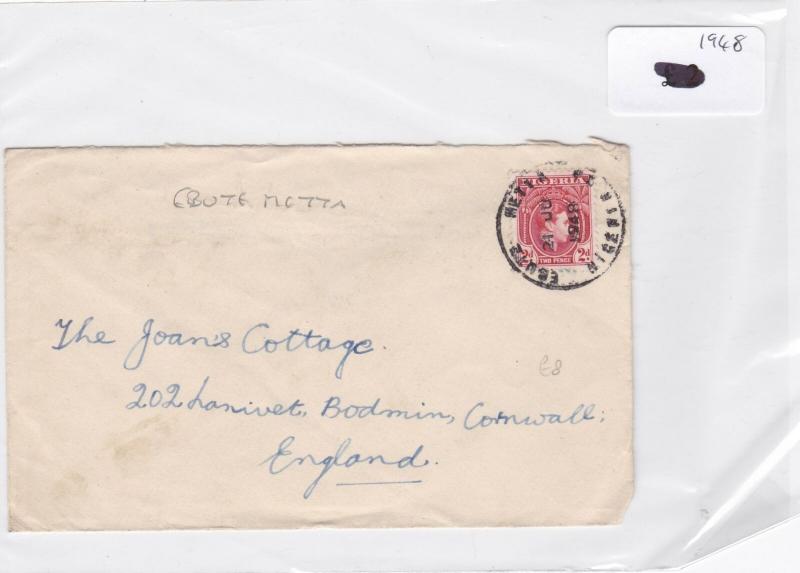 1948
EBUTE METTA
NIGERIA
TWO PENCE
2d
EBUTE METTA P.O NIGERIA
21 JU
1948
The Joan's Cottage.
202 Lanivet, Bodmin, Cornwall,
England.
E8